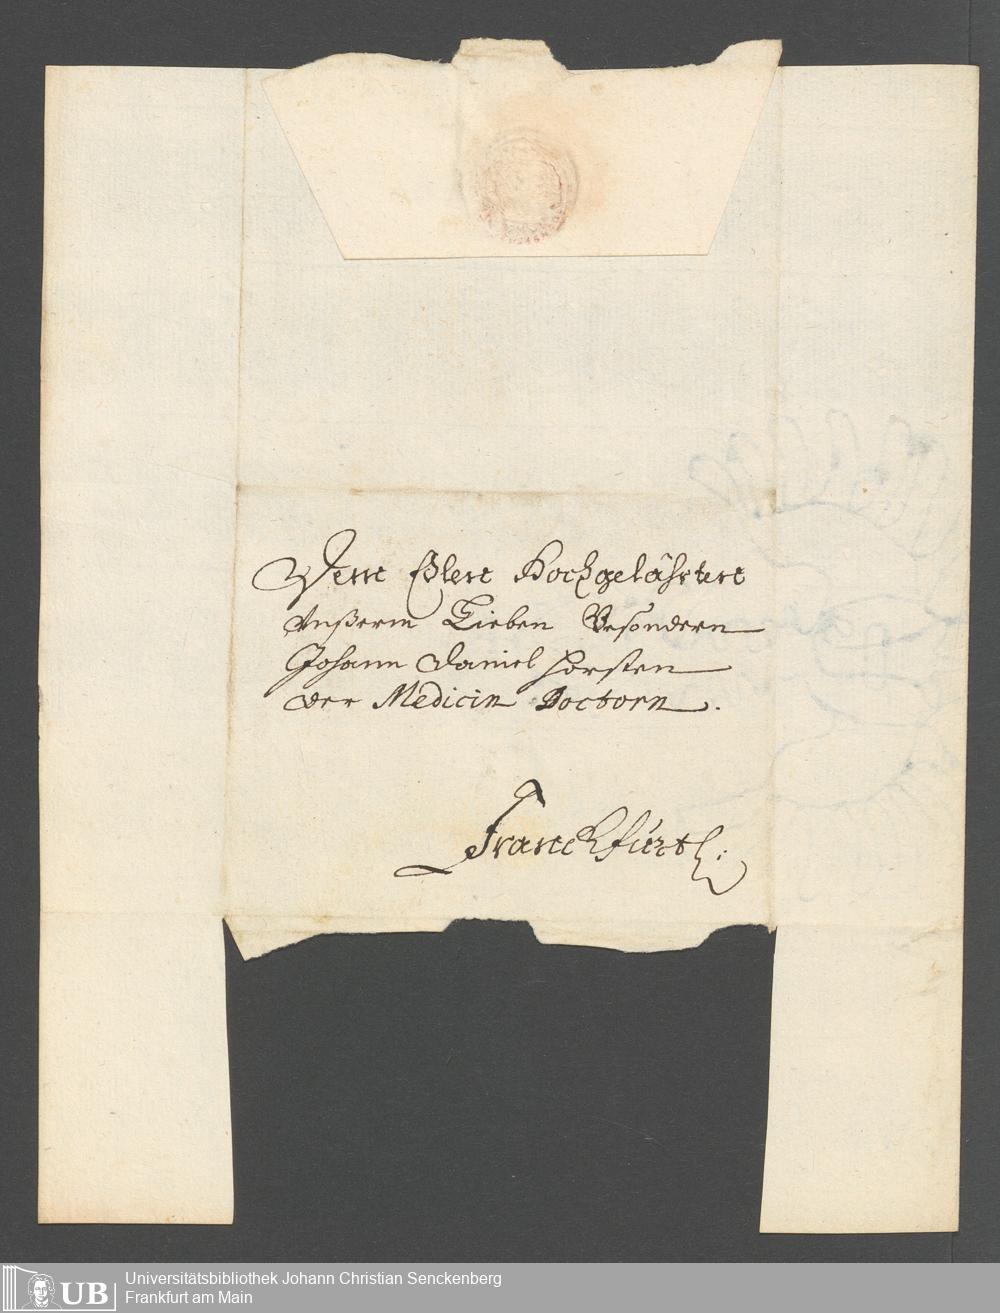 Dem Edlen Hochgelährten
Unßerm Lieben Besondern
Johann Daniel Horsten
der Medicin Doctorn.
Franckfurth:
UB
Universitätsbibliothek Johann Christian Senckenberg
Frankfurt am Main